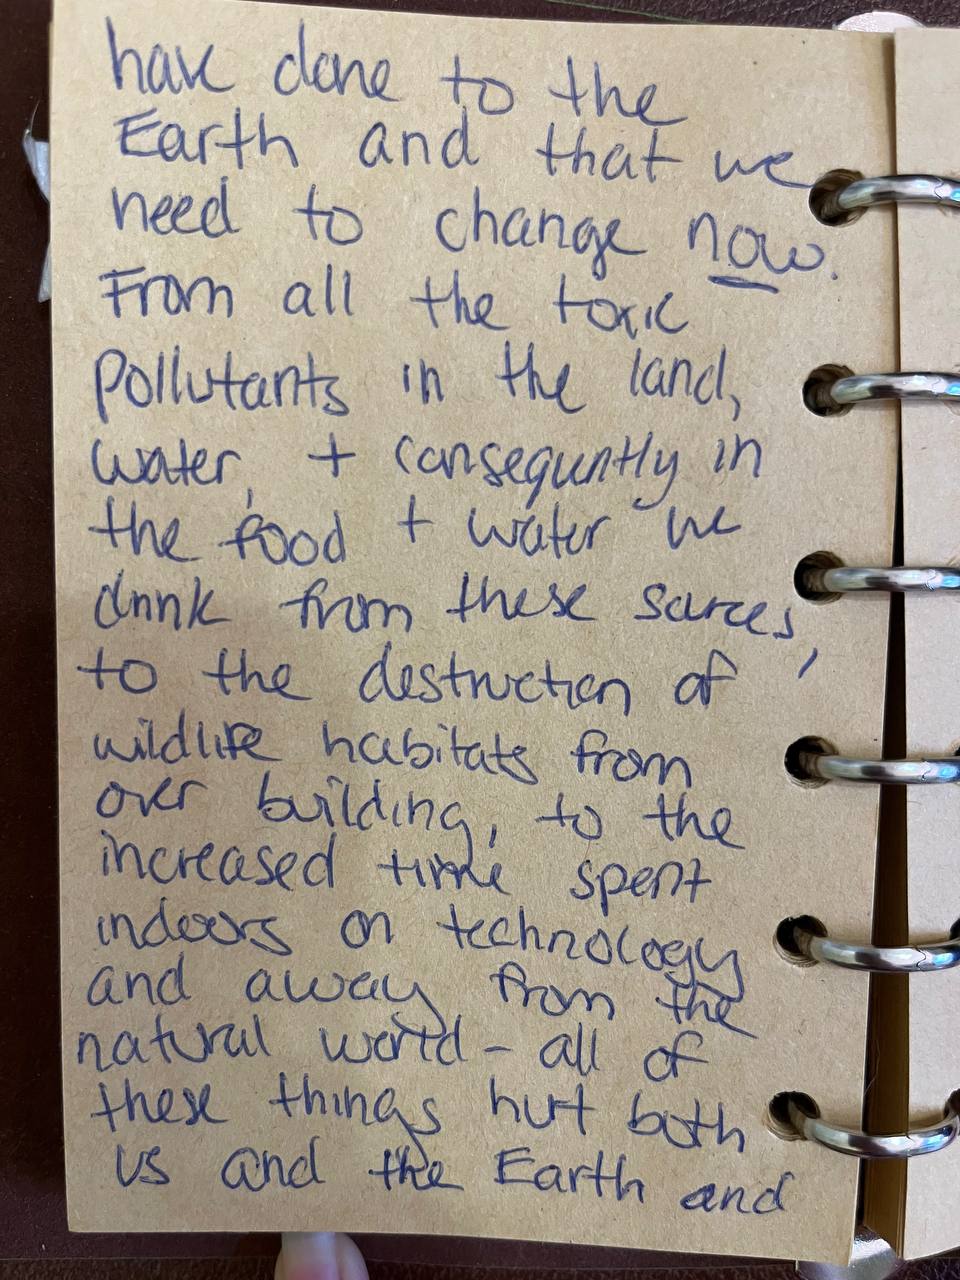 have done to the
Earth and that we
need to change now.
From all the toxic
pollutants in the land,
water, + consequntly in
the food + water we
drink from these sources,
to the destruction of
wildlife habitats from
over building, to the
increased time spent
indoors on technology
and away from the
natural world - all of
these things hurt both
us and the Earth and